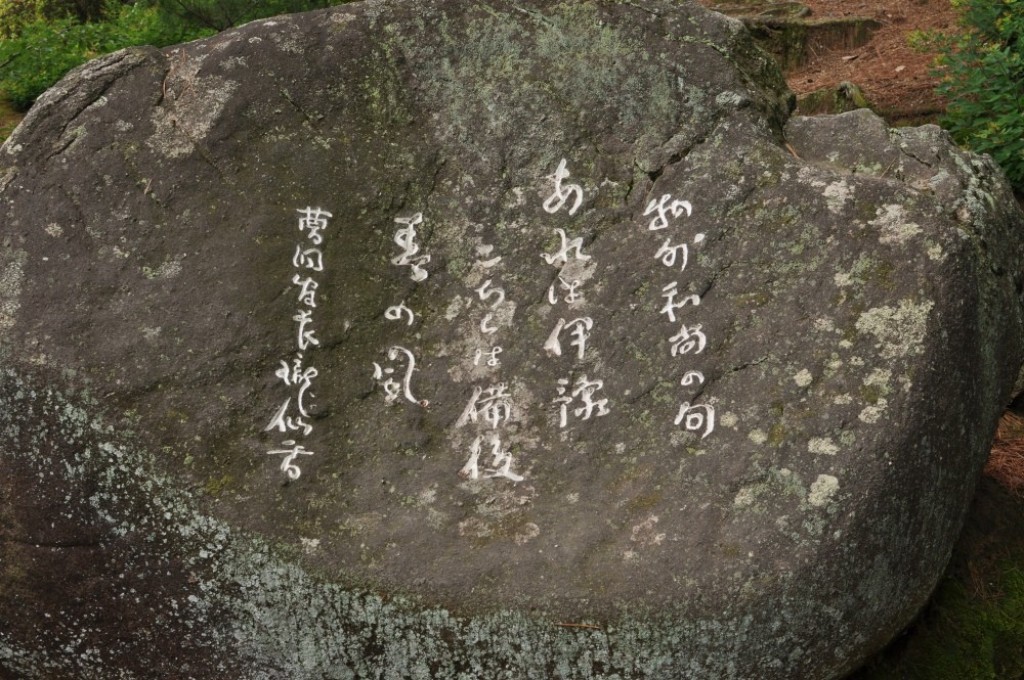 物外和尚の句
あれは伊豫
こちらは備後
春の風
曹洞宗長 瓏仙書